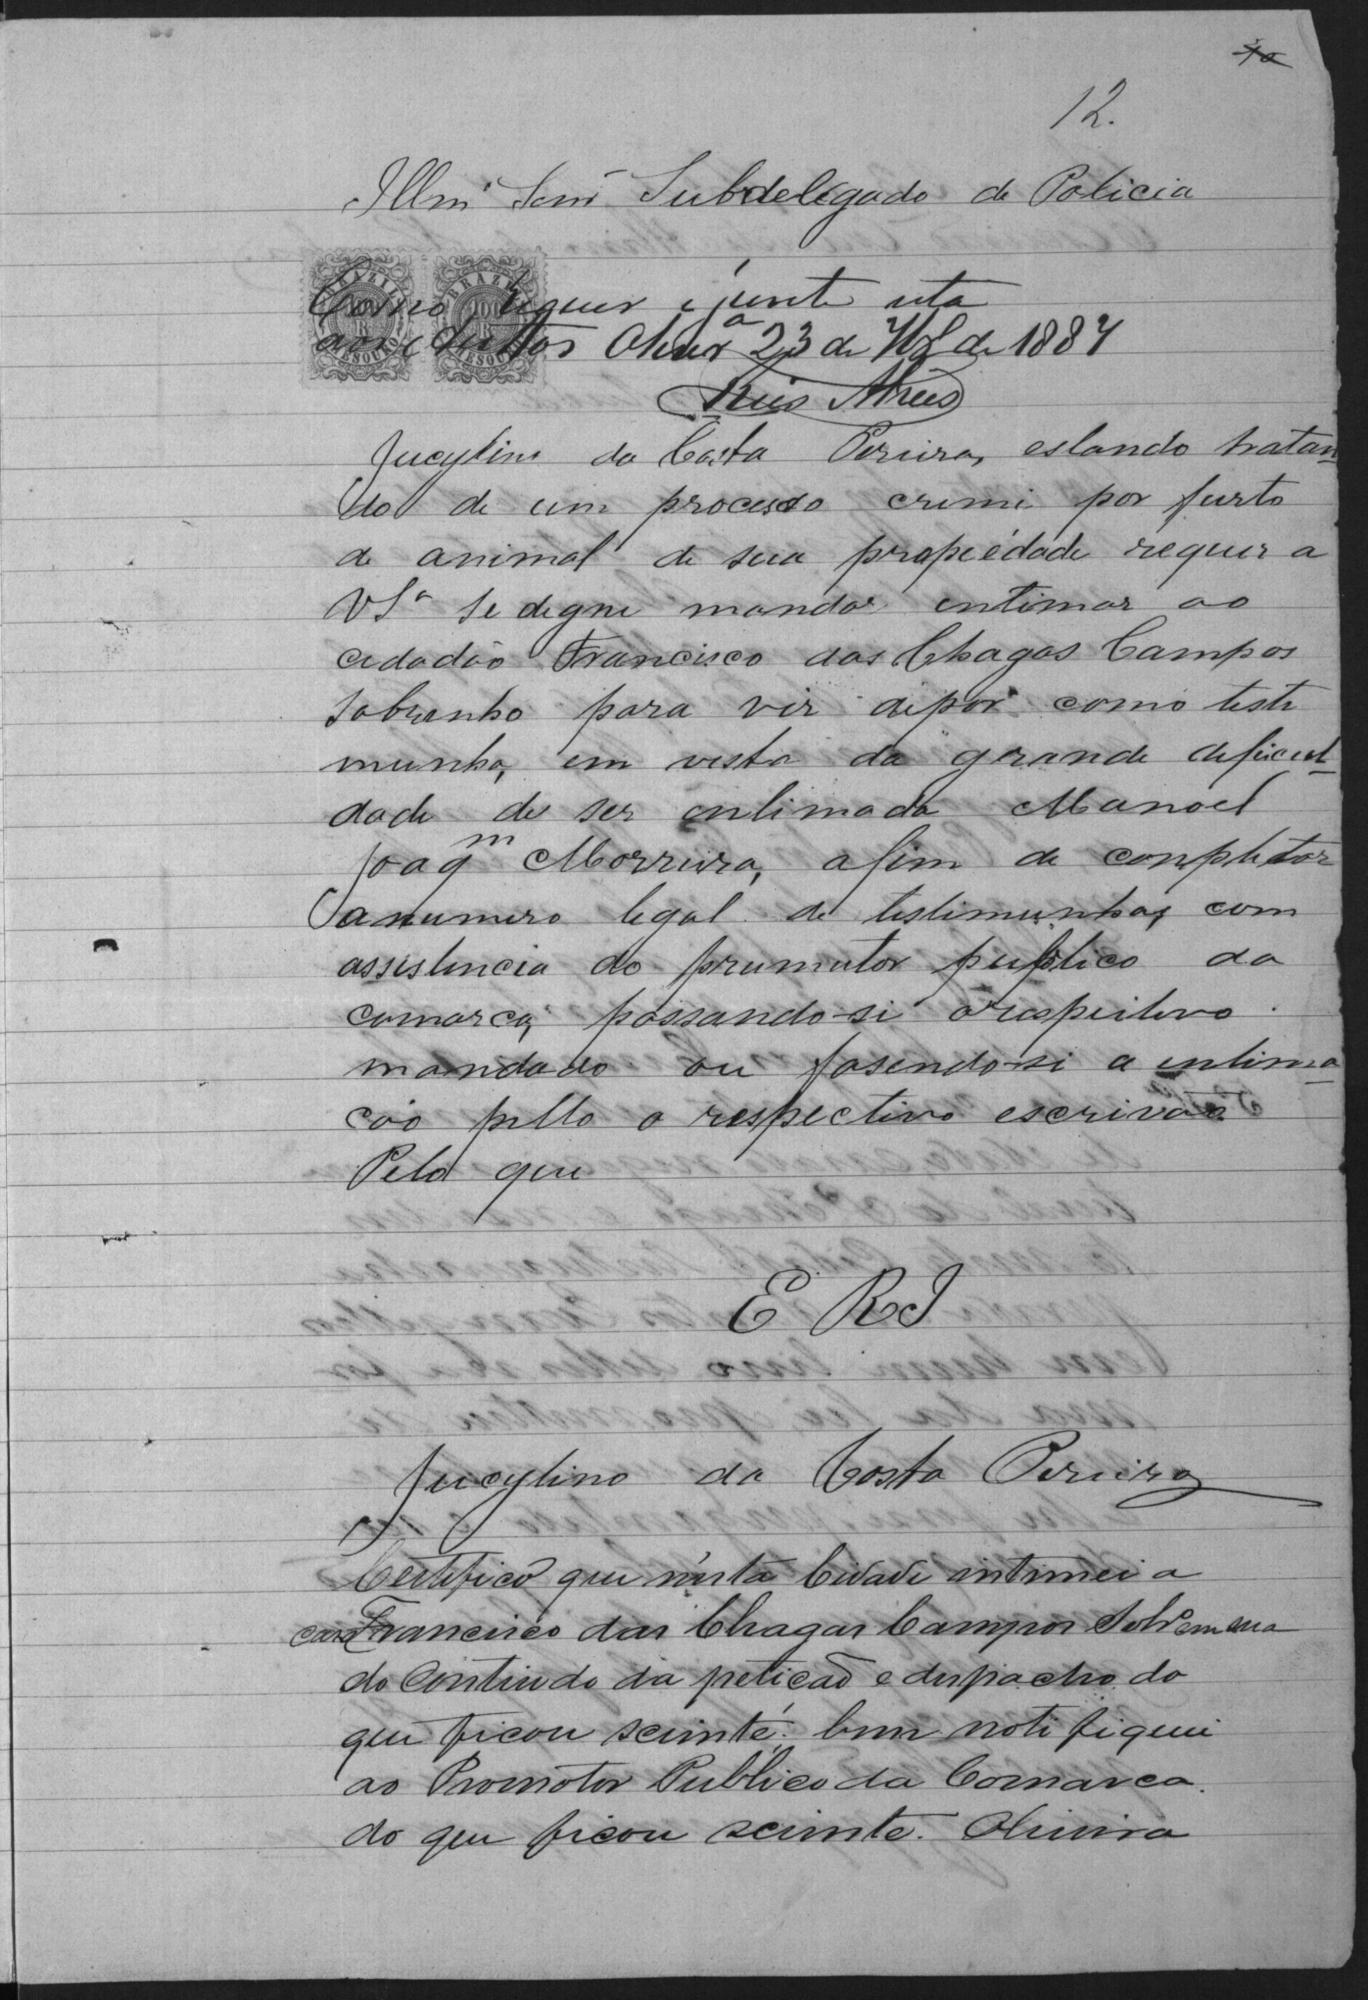 12.
Illmº Senr Subdelegado de Policia
Como requer e junte esta
aos autos Olivrª 23 de 7bro de 1887
Jucylino da Costa Pereira, estando tratan
do de um processo crimi por furto
de animal de sua propiedade requer a
VSª se digne mandar entimar ao
cidadão Francisco das Chagas Campos
Sobrinho para vir depor como teste
munha, em vista da grande deficul
dade de ser entimado Manoel
Joaqm Morreira, afim de conpletar
o numero legal de testimunhas, com
assistencia do prumutor publico da
comarca, passando-si o respeitivo
mandado ou fasendo-si a entima
cão pello o respectivo escrivão
Pelo que
E R J
Jucylino da Costa Pereira
Certifico que nesta Cidade intimei a
Francisco das Chagas Campos Sobrº em sua
casa
do contiudo da peticão e despacho do
que ficou sciente; bem notifiquei
ao Promotor Publico da Comarca.
do que ficou sciente. Oliveira